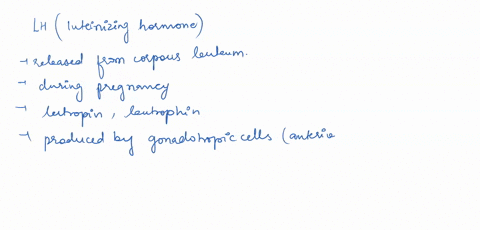 LH (luteinizing hormone)
→ released from corpous leuteum.
→ during pregnancy
→ leutropin, leutrophin
→ produced by gonadotropic cells (anteria